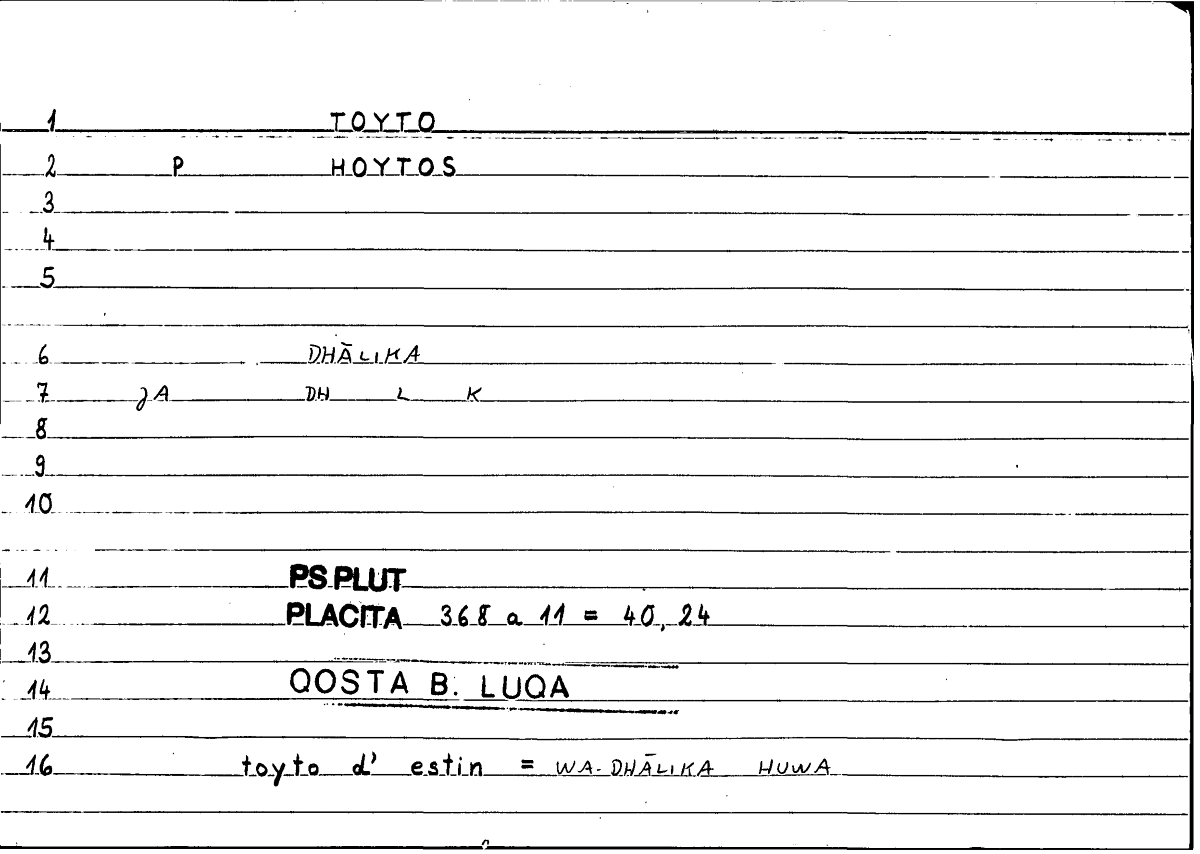 1 TOYTO
2 P HOYTOS
3
4
5
6 DHĀLIKA
7 JA DH L K
8
9
10
11 PS.PLUT
12 PLACITA 368 a 11 = 40, 24
13
14 QOSTA B. LUQA
15
16 toyto d' estin = WA-DHĀLIKA HUWA